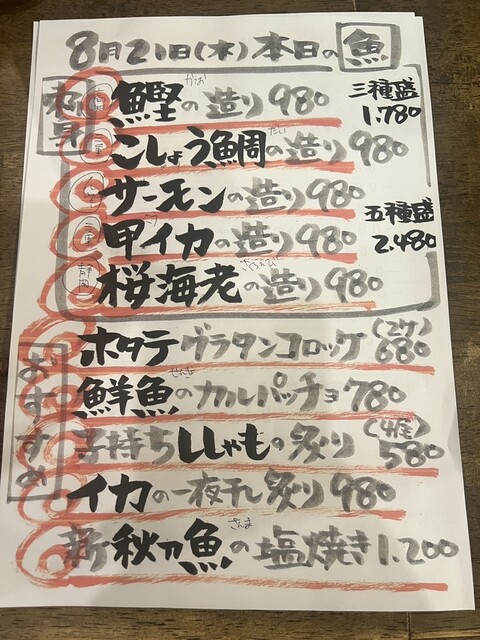 8月21日(木)本日の魚
お刺身
鰹の造り 980
かつお
三種盛
1.780
こしょう鯛の造り 980
だい
サーモンの造り 980
甲イカの造り 980
五種盛
2.480
静岡
桜海老の造り 980
さくらえび
おすすめ
ホタテグラタンコロッケ(2ケ)680
鮮魚のカルパッチョ 780
せんぎょ
子持ちししゃもの炙り(4尾)580
イカの一夜干し炙り 980
新秋刀魚の塩焼き 1.200
さんま